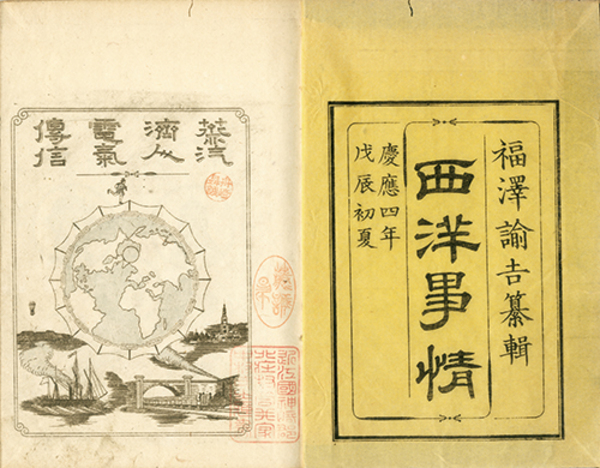 福澤諭吉纂輯
西洋事情
慶應四年
戊辰初夏
蒸汽
濟人
電氣
傳信